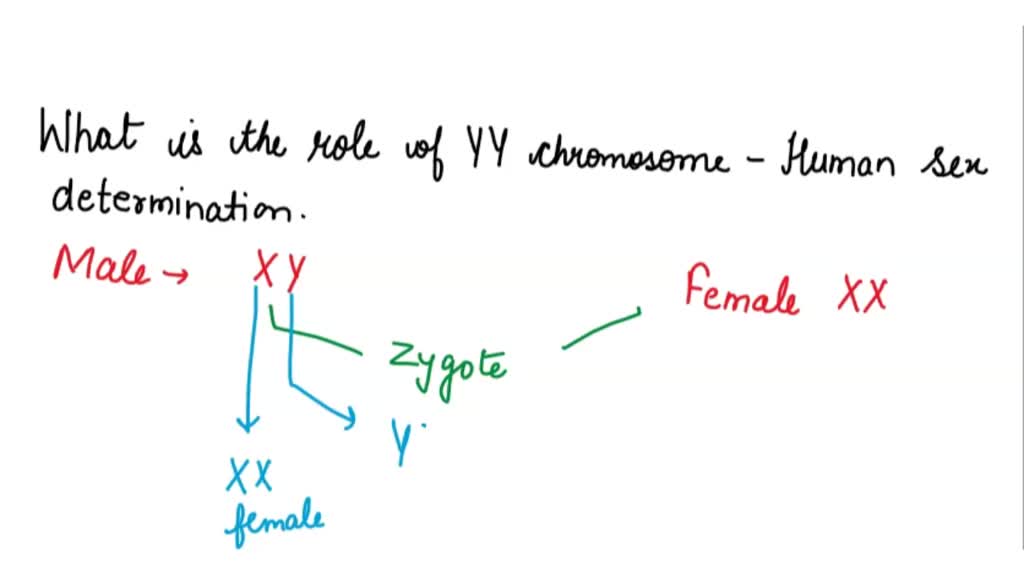 What is the role of YY chromosome - Human sex
determination.
Male → XY
Female XX
Zygote
Y
XX
female